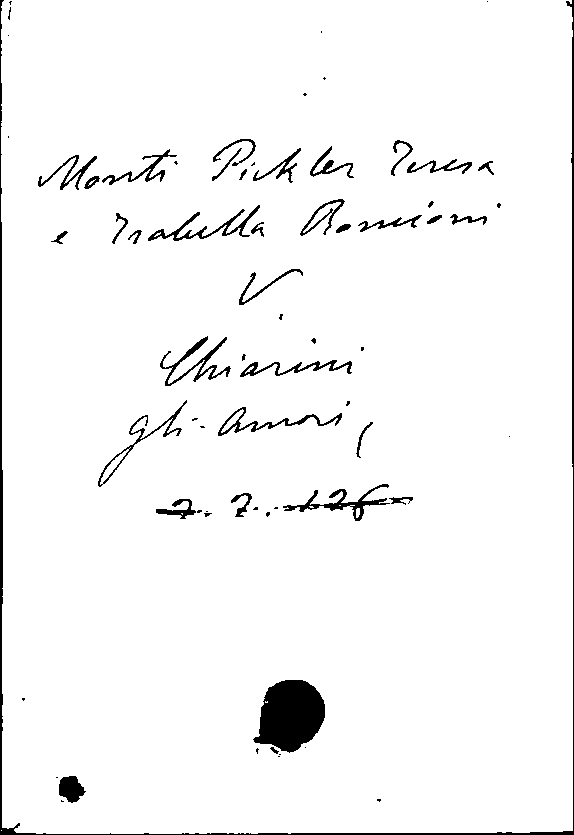 Monti Pickler Teresa
e Isabella Roncioni
V.
Chiarini
gli amori,